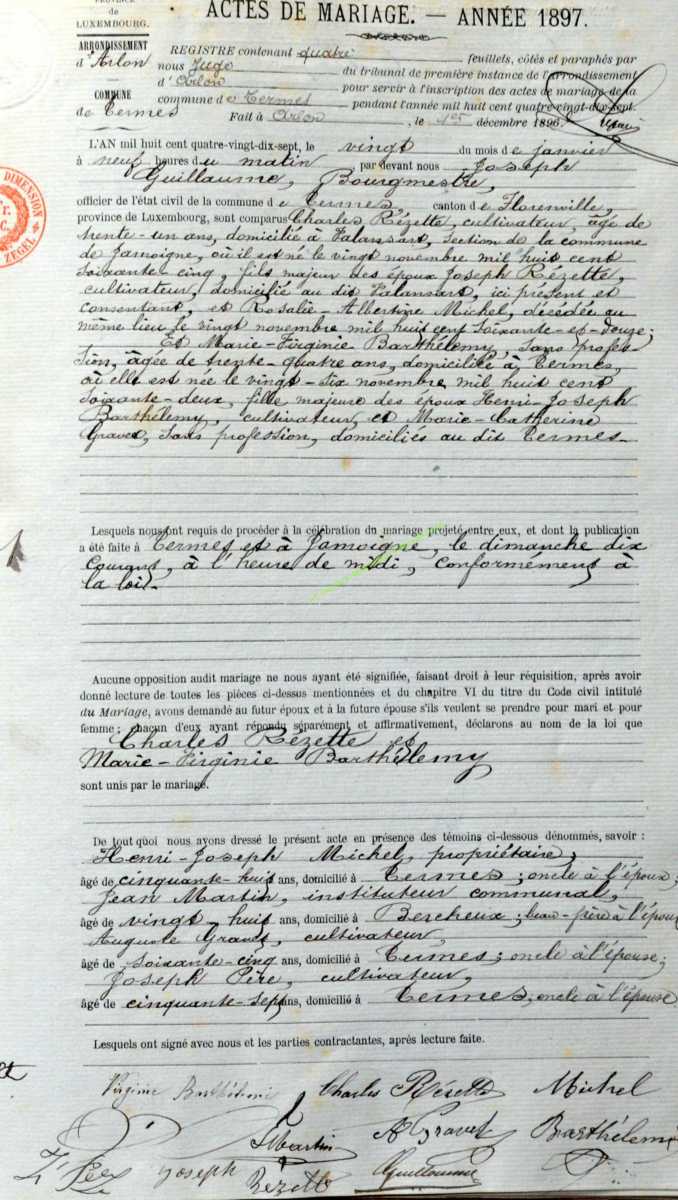 PROVINCE
DE
LUXEMBOURG.
ARRONDISSEMENT
d'Arlon
COMMUNE
de Termes
ACTES DE MARIAGE. — ANNÉE 1897.
REGISTRE contenant quatre feuillets, côtés et paraphés par
nous Juge du tribunal de première instance de l'arrondissement
d'Arlon pour servir à l'inscription des actes de mariage de la
commune de Termes pendant l'année mil huit cent quatre-vingt-dix-sept.
Fait à Arlon, le 1er décembre 1896.
DIMENSION
ZEGEL
L'AN mil huit cent quatre-vingt-dix-sept, le vingt du mois de janvier
à neuf heures du matin par devant nous Joseph
Guillaume, Bourgmestre,
officier de l'état civil de la commune de Termes, canton de Florenville,
province de Luxembourg, sont comparus Charles Rézette, cultivateur, âgé de
trente-un ans, domicilié à Valansart, section de la commune
de Jamoigne, où il est né le vingt novembre mil huit cent
soixante-cinq, fils majeur des époux Joseph Rézette,
cultivateur, domicilié au dit Valansart, ici présent et
consentant, et Rosalie-Albertine Michel, décédée au
même lieu le vingt novembre mil huit cent soixante-et-douze;
Et Marie-Virginie Barthélemy, sans profes-
sion, âgée de trente-quatre ans, domiciliée à Termes,
où elle est née le vingt-six novembre mil huit cent
soixante-deux, fille majeure des époux Henri-Joseph
Barthélemy, cultivateur, et Marie-Catherine
Gravet, sans profession, domiciliés au dit Termes.
Lesquels nous ont requis de procéder à la célébration du mariage projeté entre eux, et dont la publication
a été faite à Termes et à Jamoigne, le dimanche dix
courant, à l'heure de midi, conformément à
la loi.
Aucune opposition audit mariage ne nous ayant été signifiée, faisant droit à leur réquisition, après avoir
donné lecture de toutes les pièces ci-dessus mentionnées et du chapitre VI du titre du Code civil intitulé
du Mariage, avons demandé au futur époux et à la future épouse s'ils veulent se prendre pour mari et pour
femme; chacun d'eux ayant répondu séparément et affirmativement, déclarons au nom de la loi que
Charles Rézette et
Marie-Virginie Barthélemy
sont unis par le mariage.
De tout quoi nous avons dressé le présent acte en présence des témoins ci-dessous dénommés, savoir :
Henri-Joseph Michel, propriétaire,
âgé de cinquante-huit ans, domicilié à Termes; oncle à l'époux;
Jean Martin, instituteur communal,
âgé de vingt-huit ans, domicilié à Bercheux; beau-frère à l'époux
Auguste Gravet, cultivateur,
âgé de soixante-cinq ans, domicilié à Termes; oncle à l'épouse;
Joseph Père, cultivateur,
âgé de cinquante-sept ans, domicilié à Termes; oncle à l'épouse
Lesquels ont signé avec nous et les parties contractantes, après lecture faite.
Virginie Barthélemi Charles Rézette Michel
Martin A Gravet Barthélemi
Joseph Rézette Guillaume